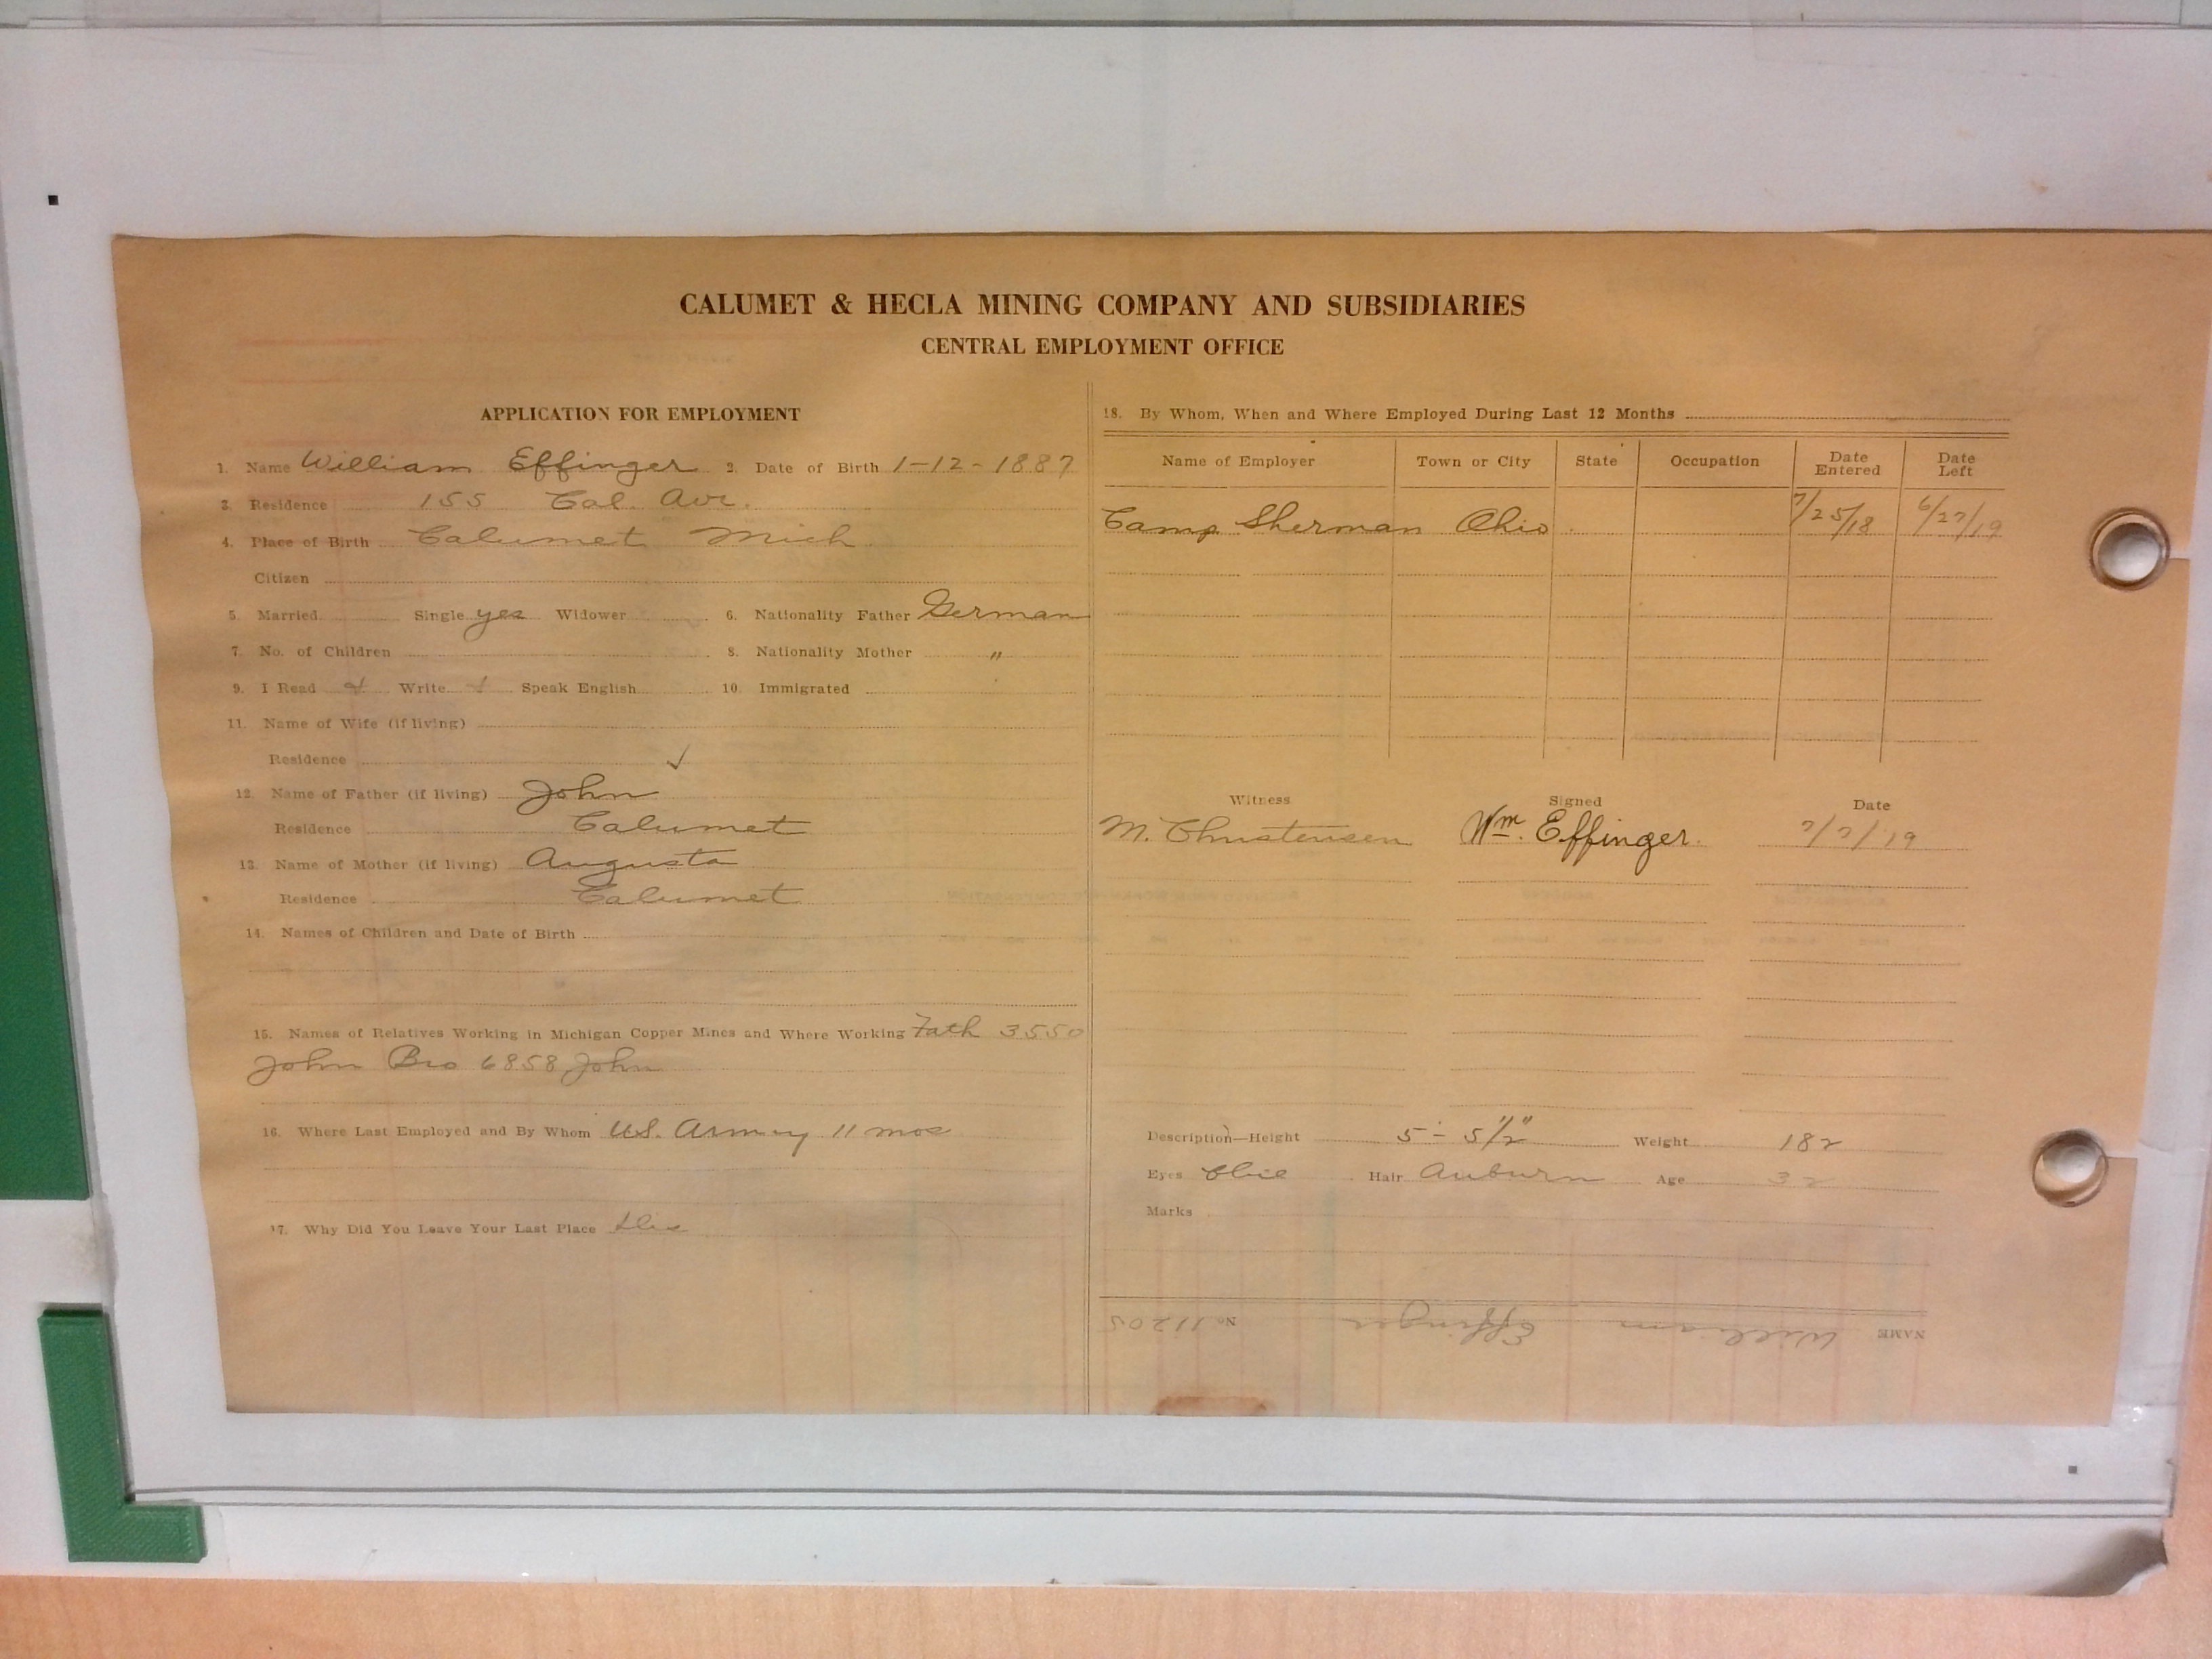 CALUMET & HECLA MINING COMPANY AND SUBSIDIARIES
CENTRAL EMPLOYMENT OFFICE
APPLICATION FOR EMPLOYMENT
1. Name William Effinger 2. Date of Birth 1-12-1887
3. Residence 155 Cal. Ave.
4. Place of Birth Calumet Mich
Citizen
5. Married Single yes Widower 6. Nationality Father German
7. No. of Children 8. Nationality Mother "
9. I Read Write Speak English 10. Immigrated
11. Name of Wife (if living)
Residence ✓
12. Name of Father (if living) John
Residence Calumet
13. Name of Mother (if living) Augusta
Residence Calumet
14. Names of Children and Date of Birth
15. Names of Relatives Working in Michigan Copper Mines and Where Working Fath 3550
John Bro 6858 John
16. Where Last Employed and By Whom U.S. Army 11 mos
17. Why Did You Leave Your Last Place
18. By Whom, When and Where Employed During Last 12 Months
Name of Employer Town or City State Occupation Date Entered Date Left
Camp Sherman Ohio 7/25/18 6/27/19
Witness Signed Date
M. Christensen Wm. Effinger. 7/7/19
Description—Height 5-5 1/2" Weight 182
Eyes Blue Hair Auburn Age 32
Marks
NAME William Effinger No 11205